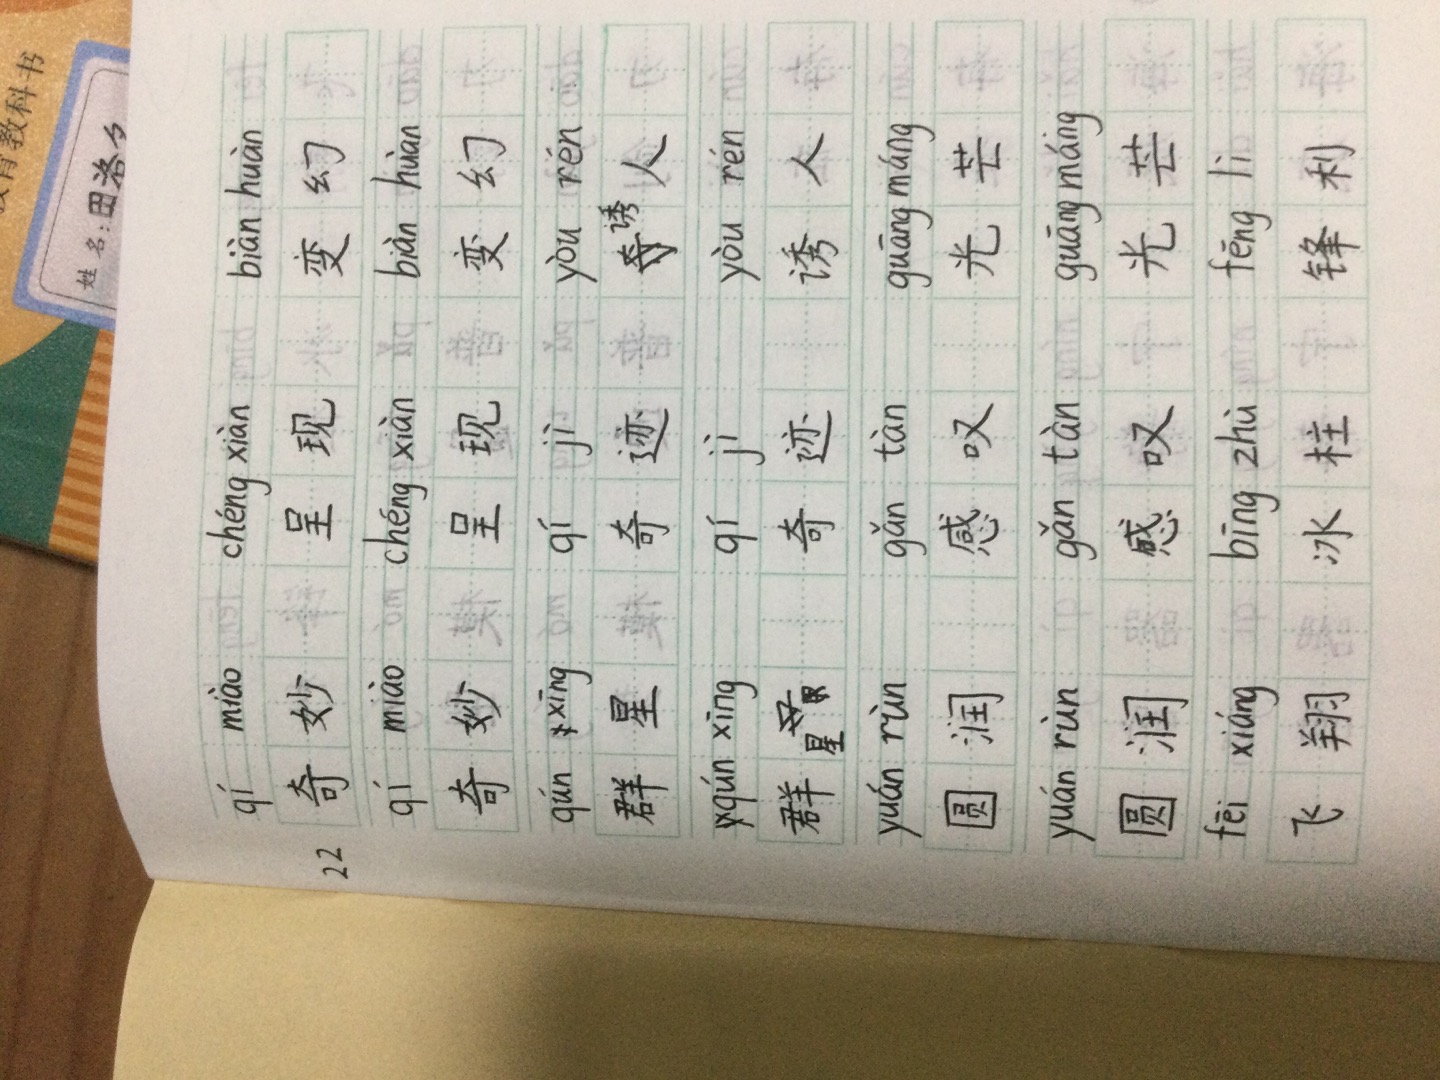 育教科书
姓名:田洛
22
qí miào chéng xiàn biàn huàn
奇妙 呈现 变幻
qí miào chéng xiàn biàn huàn
奇妙 呈现 变幻
qún xīng qí jì yòu rén
群星 奇迹 诱人
qún xīng qí jì yòu rén
群星 奇迹 诱人
yuán rùn gǎn tàn guāng máng
圆润 感叹 光芒
yuán rùn gǎn tàn guāng máng
圆润 感叹 光芒
fēi xiáng bīng zhù fēng lì
飞翔 冰柱 锋利